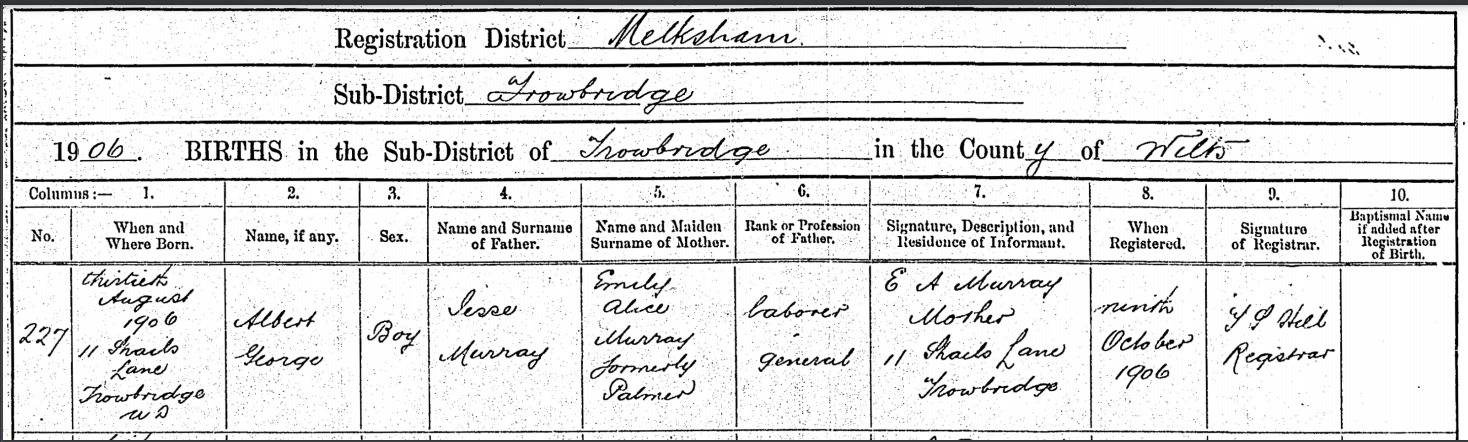 Registration District Melksham.
Sub-District Trowbridge
1906. BIRTHS in the Sub-District of Trowbridge in the County of Wilts
Columns:— 1. 2. 3. 4. 5. 6. 7. 8. 9. 10.
No.
When and
Where Born.
Name, if any.
Sex.
Name and Surname
of Father.
Name and Maiden
Surname of Mother.
Rank or Profession
of Father.
Signature, Description, and
Residence of Informant.
When
Registered.
Signature
of Registrar.
Baptismal Name
if added after
Registration
of Birth.
227
thirtieth
August
1906
11 Shails
Lane
Trowbridge
U D
Albert
George
Boy
Jesse
Murray
Emily
Alice
Murray
formerly
Palmer
Laborer
General
E A Murray
Mother
11 Shails Lane
Trowbridge
ninth
October
1906
Hill
Registrar